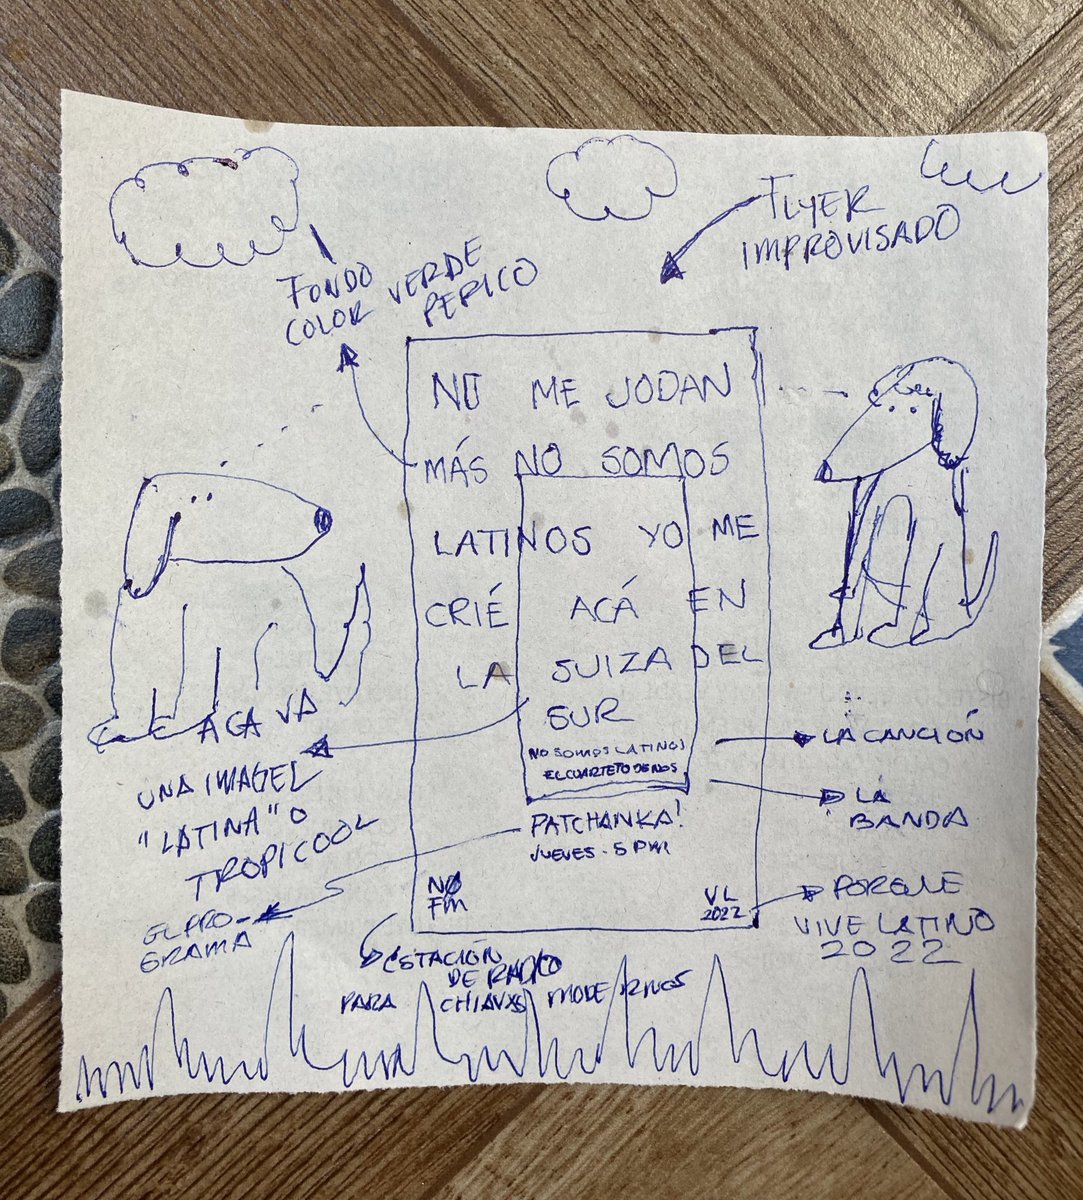 FLYER
IMPROVISADO
FONDO
COLOR VERDE
PERICO
NO ME JODAN
MÁS NO SOMOS
LATINOS YO ME
CRIÉ ACÁ EN
LA SUIZA DEL
SUR
NO SOMOS LATINOS
EL CUARTETO DE NOS
PATCHANKA!
JUEVES - 5 PM
NØ
FM
VL
2022
ACA VA
UNA IMAGEL
"LATINA" O
TROPICOOL
EL PRO-
GRAMA
LA CANCIÓN
LA
BANDA
PORQUE
VIVE LATINO
2022
ESTACIÓN
DE RADIO
PARA CHAVXS MODERNOS